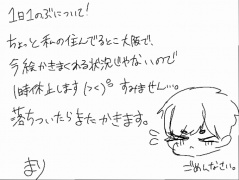 1日1のぶについて!
ちょっと私の住んでるとこ大阪で、
今絵かきまくれる状況じゃないので
1時休止します(つく)° すみません…。
落ちついたらまたかきます。
ごめんなさい。
まり